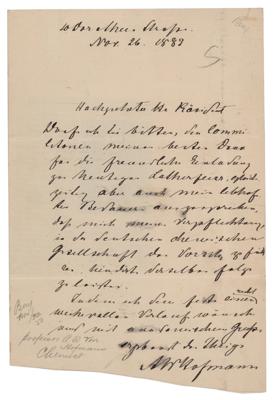 10 Dorotheen Strasse
Nov. 26. 1883
Hochgeehrter Herr Präsident
Darf ich Sie bitten, den Commi-
litonen meinen besten Dank
für die freundliche Einladung
zur heutigen Lutherfeier, gleich-
zeitig aber auch mein lebhaf-
tes Bedauern auszusprechen,
dass mich meine Verpflichtung,
in der deutschen chemischen
Gesellschaft den Vorsitz zu füh-
ren, hindert, derselben Folge
zu leisten.
Indem ich dem Feste einen recht
verlauf wünsche
und mit Gruss
ergebenst der Ihrige
AW Hofmann
professor A W von
Hofmann
Chemist